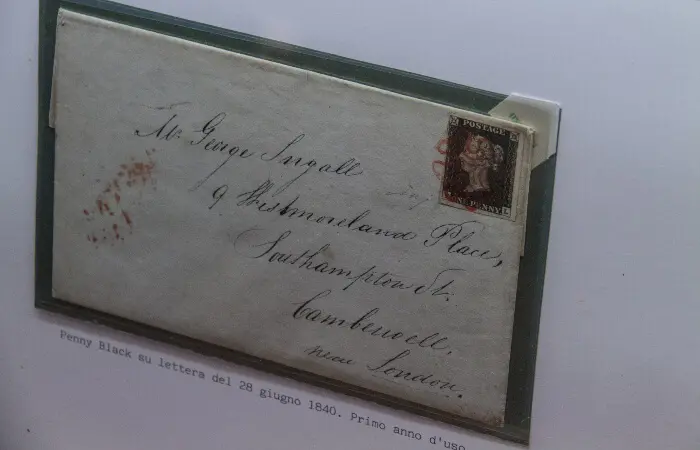 POSTAGE
ONE PENNY
Mr. George Ingall
9 Westmoreland Place,
Southampton St.
Camberwell.
near London.
Penny Black su lettera del 28 giugno 1840. Primo anno d'uso